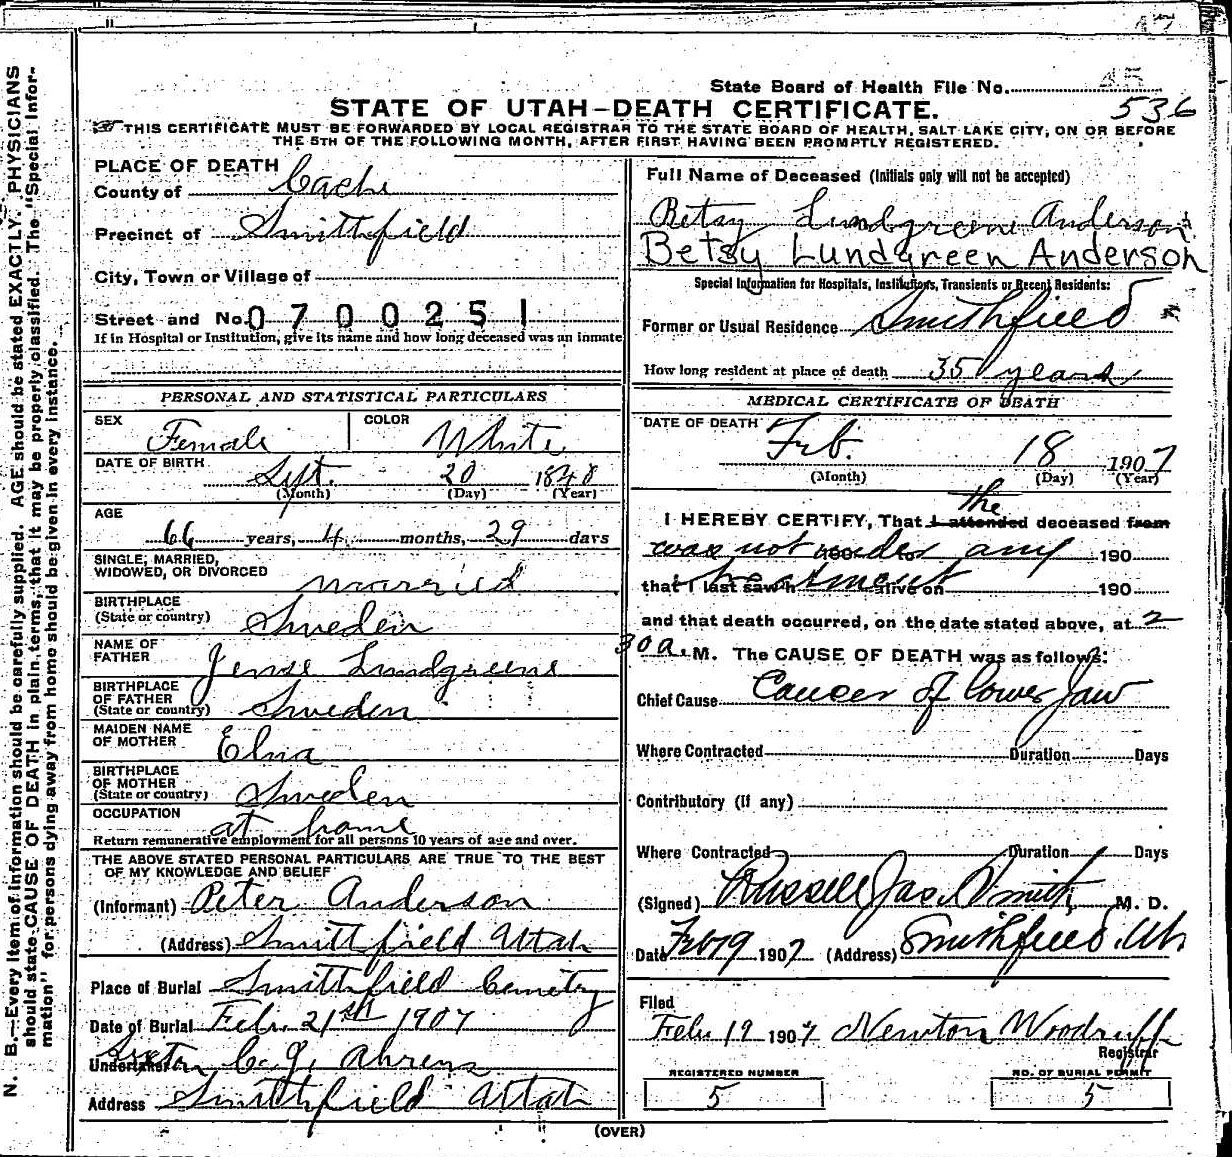 State Board of Health File No. 45
536
STATE OF UTAH—DEATH CERTIFICATE.
THIS CERTIFICATE MUST BE FORWARDED BY LOCAL REGISTRAR TO THE STATE BOARD OF HEALTH, SALT LAKE CITY, ON OR BEFORE
THE 5TH OF THE FOLLOWING MONTH, AFTER FIRST HAVING BEEN PROMPTLY REGISTERED.
PLACE OF DEATH
County of Cache
Precinct of Smithfield
City, Town or Village of
Street and No. 0700251
If in Hospital or Institution, give its name and how long deceased was an inmate
PERSONAL AND STATISTICAL PARTICULARS
SEX Female COLOR White
DATE OF BIRTH Sept. 20 1840
(Month) (Day) (Year)
AGE
66 years, 4 months, 29 days
SINGLE, MARRIED,
WIDOWED, OR DIVORCED married
BIRTHPLACE
(State or country) Sweden
NAME OF
FATHER Jense Lundgreene
BIRTHPLACE
OF FATHER
(State or country) Sweden
MAIDEN NAME
OF MOTHER Elna
BIRTHPLACE
OF MOTHER
(State or country) Sweden
OCCUPATION at home
Return remunerative employment for all persons 10 years of age and over.
THE ABOVE STATED PERSONAL PARTICULARS ARE TRUE TO THE BEST
OF MY KNOWLEDGE AND BELIEF
(Informant) Peter Anderson
(Address) Smithfield Utah
Place of Burial Smithfield Cemetry
Date of Burial Feb. 21st 1907
Undertaker Sexton C. J. Ahrens
Address Smithfield Utah
Full Name of Deceased (Initials only will not be accepted)
Betsy Lundgreene Anderson
Betsy Lundgreen Anderson
Special Information for Hospitals, Institutions, Transients or Recent Residents:
Former or Usual Residence Smithfield
How long resident at place of death 35 years
MEDICAL CERTIFICATE OF DEATH
DATE OF DEATH Feb. 18 1907
(Month) (Day) (Year)
I HEREBY CERTIFY, That I attended the deceased from
was not under any 190
that I last saw h treatment alive on 190
and that death occurred, on the date stated above, at 2
30 a. M. The CAUSE OF DEATH was as follows:
Chief Cause Cancer of lower Jaw
Where Contracted Duration Days
Contributory (If any)
Where Contracted Duration Days
(Signed) Russell Jas. Smith, M. D.
Date Feb 19 1907 (Address) Smithfield, Ut
Filed
Feb. 19 1907 Newton Woodruff
Registrar
REGISTERED NUMBER
5
NO. OF BURIAL PERMIT
5
(OVER)
N. B.—Every item of information should be carefully supplied. AGE should be stated EXACTLY. PHYSICIANS
should state CAUSE OF DEATH in plain terms, that it may be properly classified. The "Special Infor-
mation" for persons dying away from home should be given in every instance.